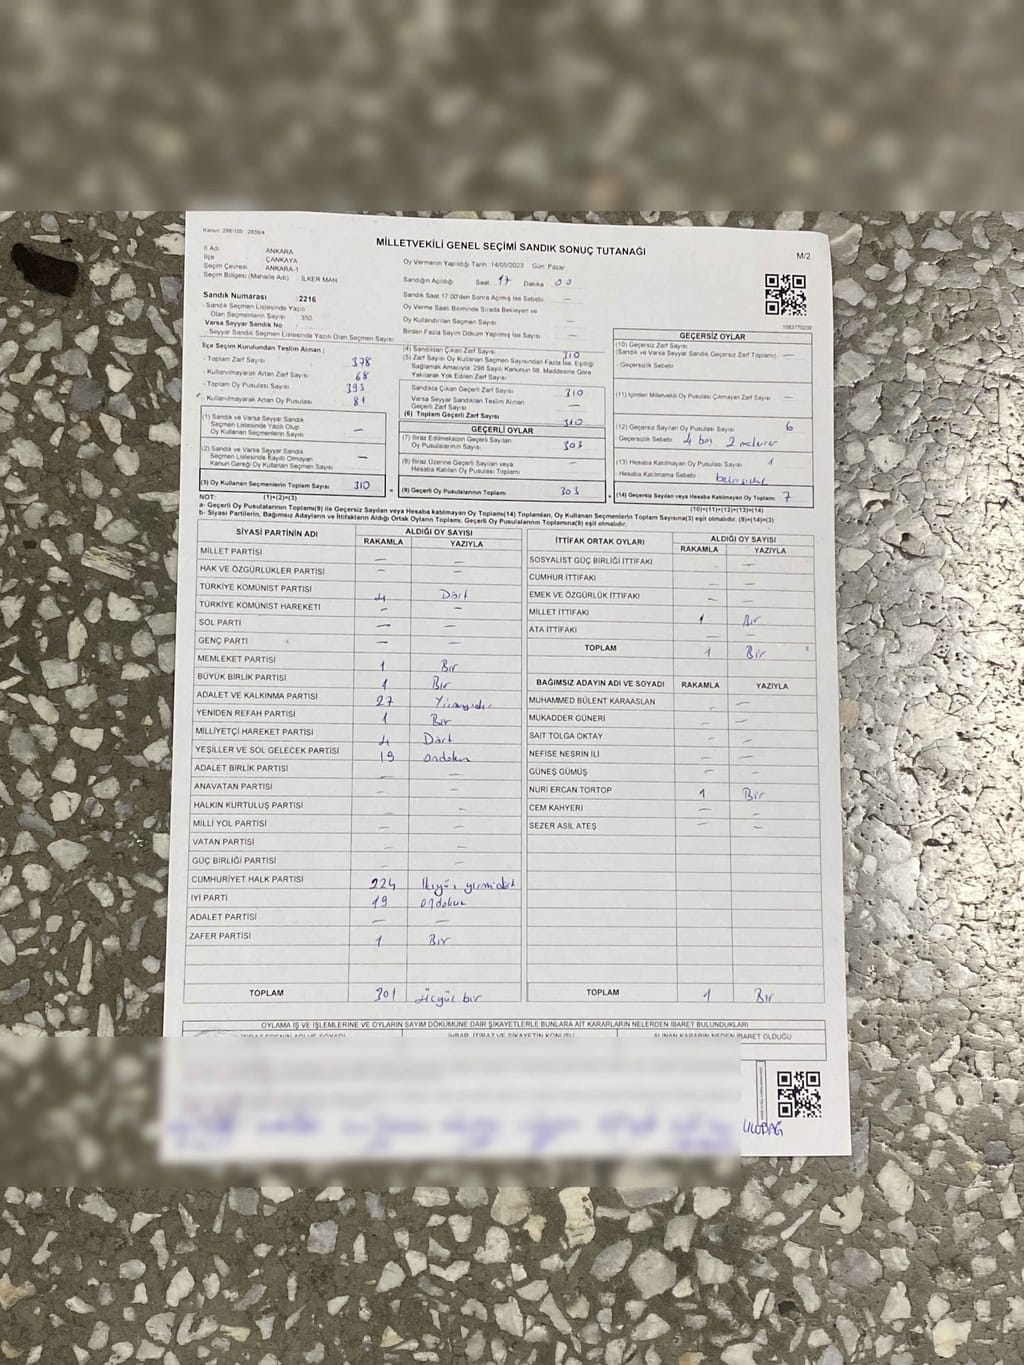 Kanun: 298/105 : 2839/4
MİLLETVEKİLİ GENEL SEÇİMİ SANDIK SONUÇ TUTANAĞI
M/2
İl Adı ANKARA
İlçe ÇANKAYA
Seçim Çevresi ANKARA-1
Seçim Bölgesi (Mahalle Adı) İLKER MAH
Oy Vermenin Yapıldığı Tarih :14/05/2023 Gün Pazar
Sandığın Açıldığı Saat 17 Dakika 00
Sandık Saat 17:00'den Sonra Açılmış İse Sebebi —
Oy Verme Saati Bitiminde Sırada Bekleyen ve
Oy Kullandırılan Seçmen Sayısı —
Birden Fazla Sayım Döküm Yapılmış İse Sayısı —
Sandık Numarası :2216
- Sandık Seçmen Listesinde Yazılı
Olan Seçmenlerin Sayısı 350
Varsa Seyyar Sandık No
- Seyyar Sandık Seçmen Listesinde Yazılı Olan Seçmen Sayısı
İlçe Seçim Kurulundan Teslim Alınan ;
- Toplam Zarf Sayısı 378
- Kullanılmayarak Artan Zarf Sayısı 68
- Toplam Oy Pusulası Sayısı 393
- Kullanılmayarak Artan Oy Pusulası 81
(1) Sandık ve Varsa Seyyar Sandık
Seçmen Listesinde Yazılı Olup
Oy Kullanan Seçmenlerin Sayısı —
(2) Sandık ve Varsa Seyyar Sandık
Seçmen Listesinde Kayıtlı Olmayan
Kanun Gereği Oy Kullanan Seçmen Sayısı —
(3) Oy Kullanan Seçmenlerin Toplam Sayısı 310
(1)+(2)=(3)
(4) Sandıktan Çıkan Zarf Sayısı 310
(5) Zarf Sayısı Oy Kullanan Seçmen Sayısından Fazla İse, Eşitliği
Sağlamak Amacıyla; 298 Sayılı Kanunun 98. Maddesine Göre
Yakılarak Yok Edilen Zarf Sayısı
Sandıkta Çıkan Geçerli Zarf Sayısı 310
Varsa Seyyar Sandıktan Teslim Alınan
Geçerli Zarf Sayısı —
(6) Toplam Geçerli Zarf Sayısı 310
GEÇERLİ OYLAR
(7) İtiraz Edilmeksizin Geçerli Sayılan
Oy Pusulalarının Sayısı 303
(8) İtiraz Üzerine Geçerli Sayılan veya
Hesaba Katılan Oy Pusulası Toplamı —
(9) Geçerli Oy Pusulalarının Toplamı 303
1083770238
GEÇERSİZ OYLAR
(10) Geçersiz Zarf Sayısı
(Sandık ve Varsa Seyyar Sandık Geçersiz Zarf Toplamı) —
- Geçersizlik Sebebi
(11) İçinden Milletvekili Oy Pusulası Çıkmayan Zarf Sayısı —
(12) Geçersiz Sayılan Oy Pusulası Sayısı 6
Geçersizlik Sebebi 4 boş 2
(13) Hesaba Katılmayan Oy Pusulası Sayısı 1
Hesaba Katılmama Sebebi
(14) Geçersiz Sayılan veya Hesaba Katılmayan Oy Toplamı 7
(10)+(11)+(12)+(13)=(14)
NOT:
a- Geçerli Oy Pusulasının Toplamı(9) ile Geçersiz Sayılan veya Hesaba Katılmayan Oy Toplamı(14) Toplamları, Oy Kullanan Seçmenlerin Toplam Sayısına(3) eşit olmalıdır. (9)+(14)=(3)
b- Siyasi Partilerin, Bağımsız Adayların ve İttifakların Aldığı Ortak Oyların Toplamı, Geçerli Oy Pusulasının Toplamına(9) eşit olmalıdır.
SİYASİ PARTİNİN ADI ALDIĞI OY SAYISI
RAKAMLA YAZIYLA
MİLLET PARTİSİ — —
HAK VE ÖZGÜRLÜKLER PARTİSİ — —
TÜRKİYE KOMÜNİST PARTİSİ 4 Dört
TÜRKİYE KOMÜNİST HAREKETİ — —
SOL PARTİ — —
GENÇ PARTİ — —
MEMLEKET PARTİSİ 1 Bir
BÜYÜK BİRLİK PARTİSİ 1 Bir
ADALET VE KALKINMA PARTİSİ 27
YENİDEN REFAH PARTİSİ 1 Bir
MİLLİYETÇİ HAREKET PARTİSİ 4 Dört
YEŞİLLER VE SOL GELECEK PARTİSİ 19 ondokuz
ADALET BİRLİK PARTİSİ — —
ANAVATAN PARTİSİ — —
HALKIN KURTULUŞ PARTİSİ —
MİLLİ YOL PARTİSİ — —
VATAN PARTİSİ — —
GÜÇ BİRLİĞİ PARTİSİ — —
CUMHURİYET HALK PARTİSİ 224 İkiyüz yirmidört
İYİ PARTİ 19 ondokuz
ADALET PARTİSİ — —
ZAFER PARTİSİ 1 Bir
TOPLAM 301 Üçyüz bir
İTTİFAK ORTAK OYLARI ALDIĞI OY SAYISI
RAKAMLA YAZIYLA
SOSYALİST GÜÇ BİRLİĞİ İTTİFAKI —
CUMHUR İTTİFAKI — —
EMEK VE ÖZGÜRLÜK İTTİFAKI — —
MİLLET İTTİFAKI 1 Bir
ATA İTTİFAKI — —
TOPLAM 1 Bir
BAĞIMSIZ ADAYIN ADI VE SOYADI RAKAMLA YAZIYLA
MUHAMMED BÜLENT KARAASLAN — —
MUKADDER GÜNERİ — —
SAİT TOLGA OKTAY — —
NEFİSE NESRİN İLİ — —
GÜNEŞ GÜMÜŞ — —
NURİ ERCAN TORTOP 1 Bir
CEM KAHYERİ — —
SEZER ASİL ATEŞ — —
TOPLAM 1 Bir
OYLAMA İŞ VE İŞLEMLERİNE VE OYLARIN SAYIM DÖKÜMÜNE DAİR ŞİKAYETLERLE BUNLARA AİT KARARLARIN NELERDEN İBARET BULUNDUKLARI
İHBAR, İTİRAZ VE ŞİKAYETİN KONUSU ALINAN KARARIN NEDEN İBARET OLDUĞU
ULUDAĞ